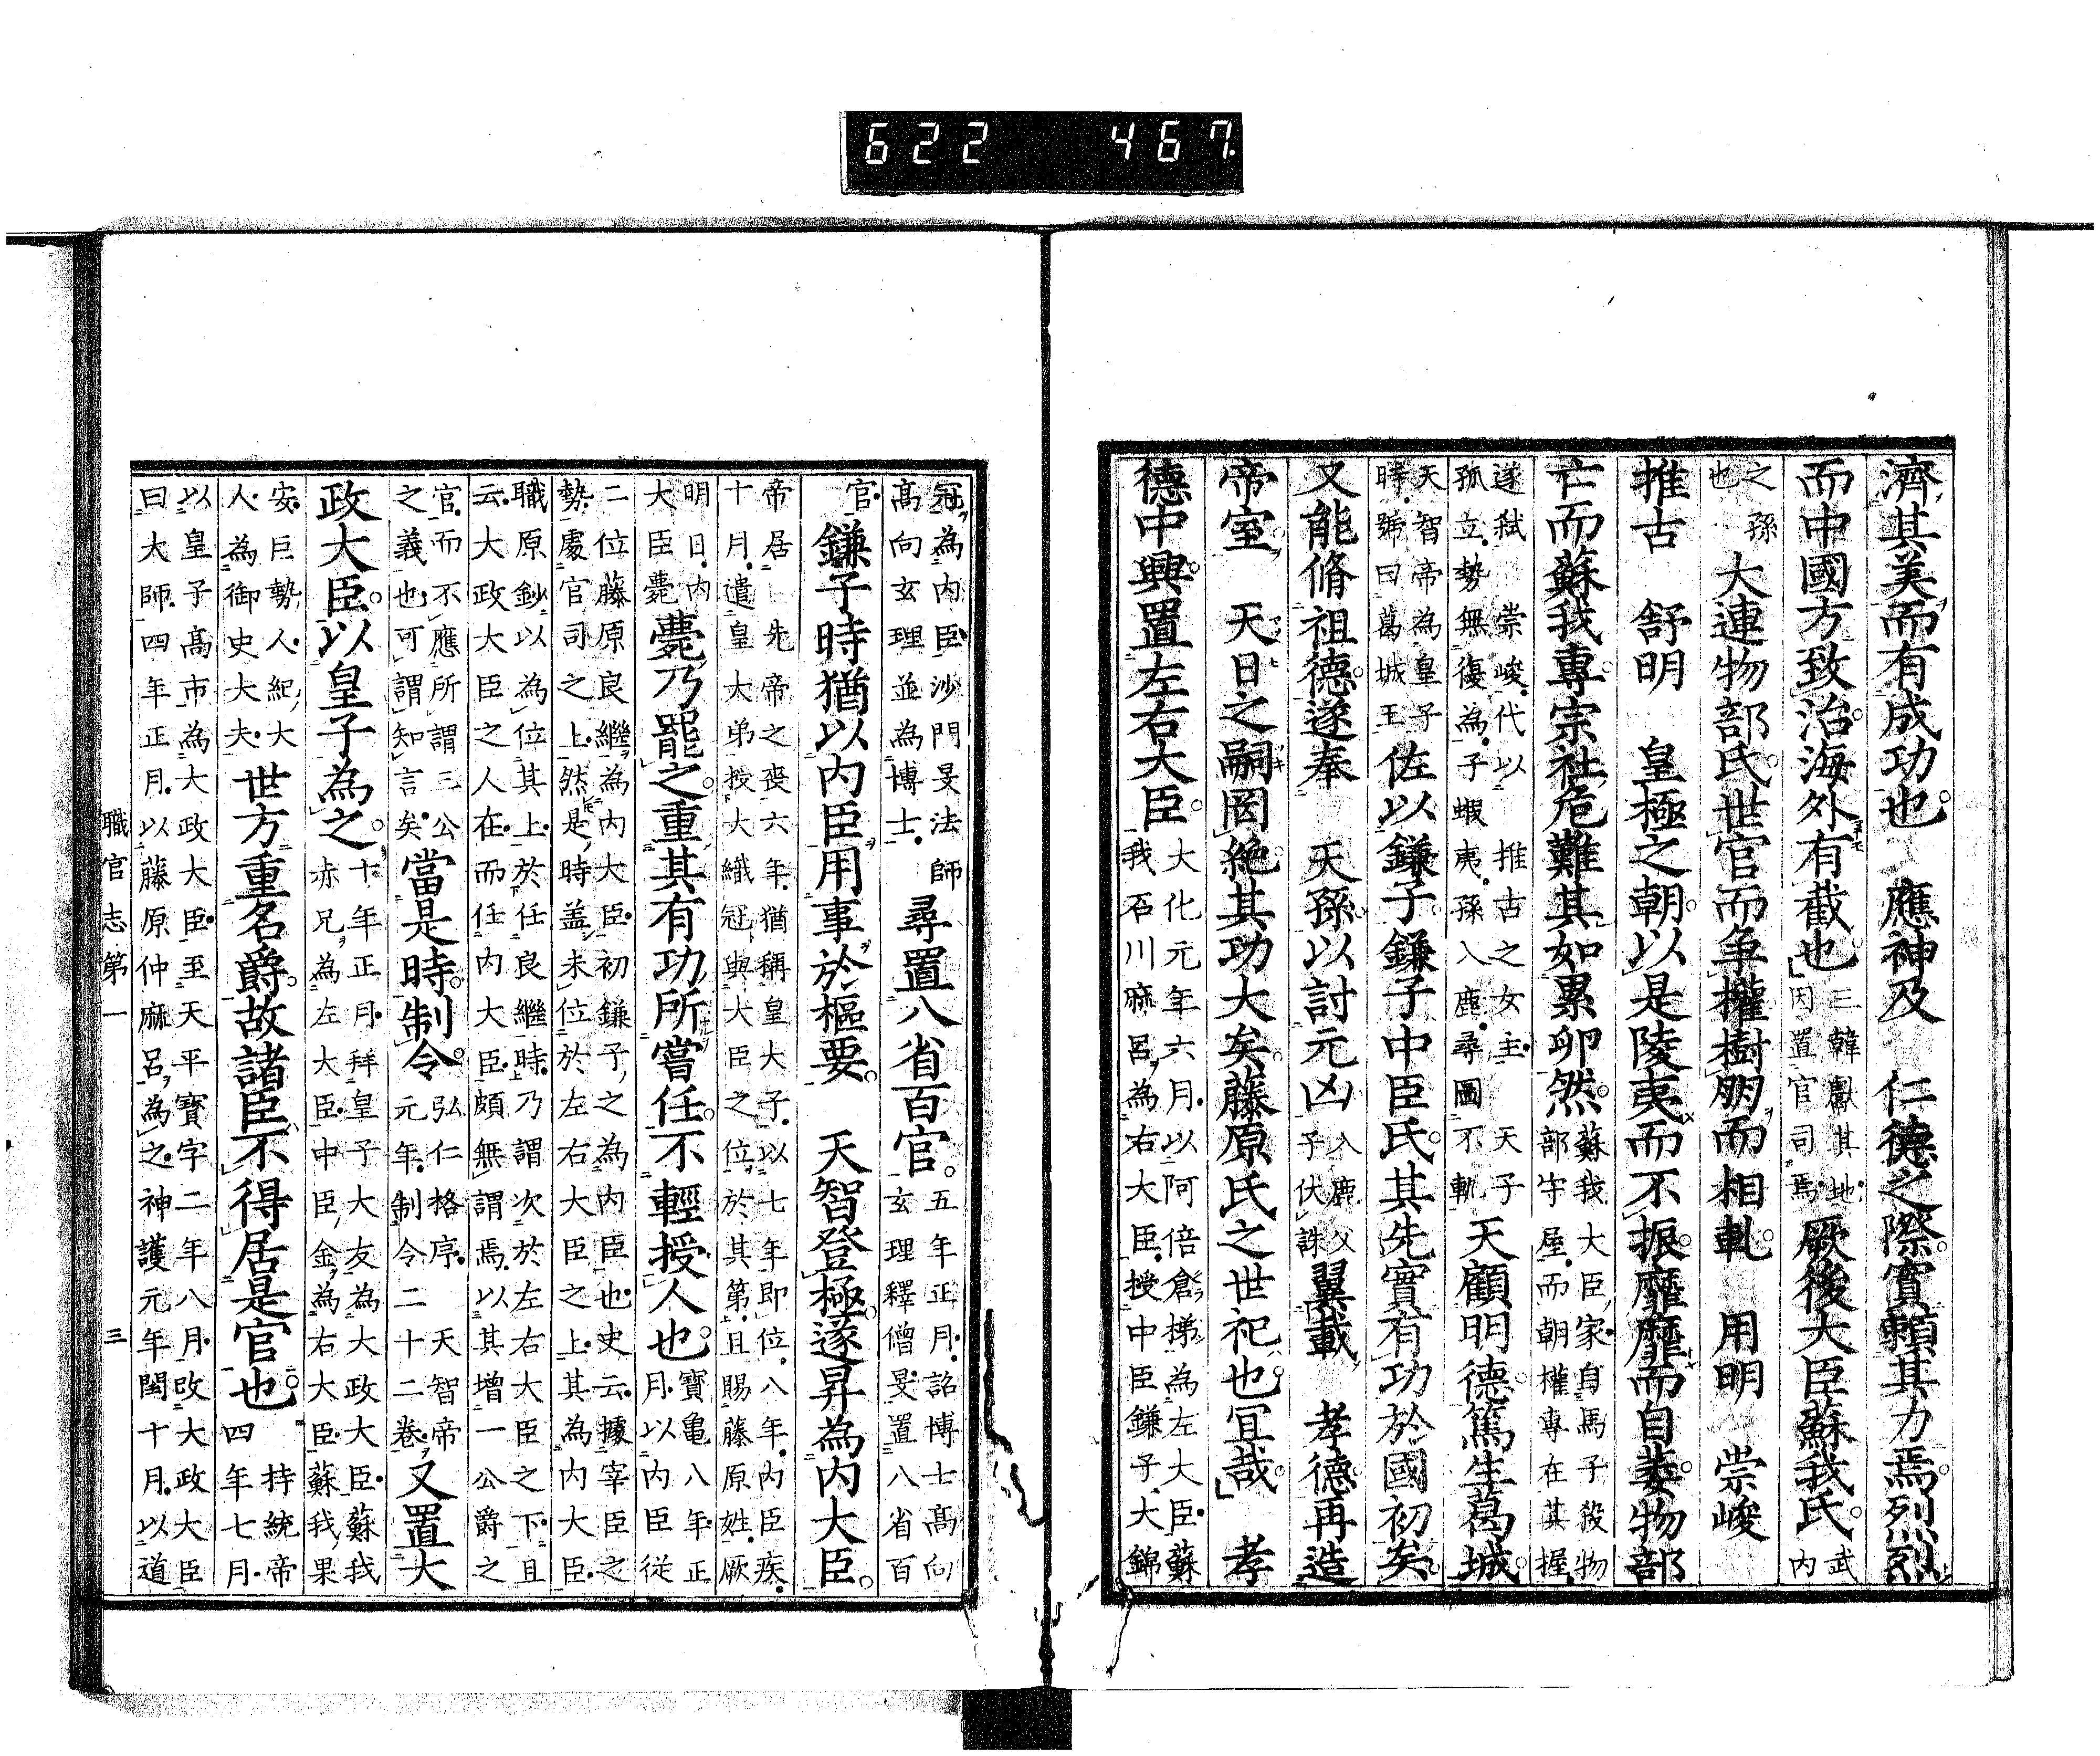 濟其美而有成功也。　應神及　仁德之際。實賴其力焉。烈烈
而中國方致治。海外有截也。三韓獻其地因置官司焉厥後大臣蘇我氏。武内
之孫也大連物部氏。世官而爭權。樹朋而相軋。　用明　崇峻
推古　舒明　皇極之朝。以是陵夷而不振。靡靡而自萎。物部
亡而蘇我專。宗社危難。其如累卵然。蘇我大臣家自馬子殺物部守屋而朝權專在其握
遂弑　崇峻代以　推古之女主　天子孤立勢無復為子蝦夷孫入鹿尋圖不軌天顧明德。篤生葛城。
天智帝為皇子時號曰葛城王佐以鎌子。鎌子中臣氏。其先實有功於國初矣。
又能脩祖德。遂奉　天孫。以討元凶入鹿父子伏誅翼載　孝德。再造
帝室　天日之嗣。罔絶其功大矣。藤原氏之世祀也。宜哉。　孝
德中興。置左右大臣。大化元年六月以阿倍倉梯為左大臣蘇我石川麻呂為右大臣授中臣鎌子大錦
冠為内臣沙門旻法師高向玄理並為博士尋置八省百官。五年正月詔博士高向玄理釋僧旻置八省百
官鎌子時猶以内臣用事於樞要。　天智登極。遂昇為内大臣。
帝居　先帝之喪六年猶稱皇大子以七年即位八年内臣疾
十月遣皇大弟授大織冠與大臣之位於其第且賜藤原姓厥
明日内大臣薨薨乃罷之。重其有功所嘗任。不輕授人也。寶龜八年正月以内臣從
二位藤原良繼為内大臣初鎌子之為内臣也史云據宰臣之
勢處官司之上然是時蓋未位於左右大臣之上其為内大臣
職原鈔以為位其上於任良繼時乃謂次於左右大臣之下且
云大政大臣之人在而任内大臣頗無謂焉以其增一公爵之
官而不應所謂三公之義也可謂知言矣當是時。制令。弘仁格序　天智帝元年制令二十二卷又置大
政大臣。以皇子為之。十年正月拜皇子大友為大政大臣蘇我赤兄為左大臣中臣金為右大臣蘇我果
安巨勢人紀大人為御史大夫世方重名爵。故諸臣不得居是官也。持統帝四年七月
以皇子高市為大政大臣至天平寶字二年八月改大政大臣
曰大師四年正月以藤原仲麻呂為之神護元年閏十月以道
職官志第一　三
622　467